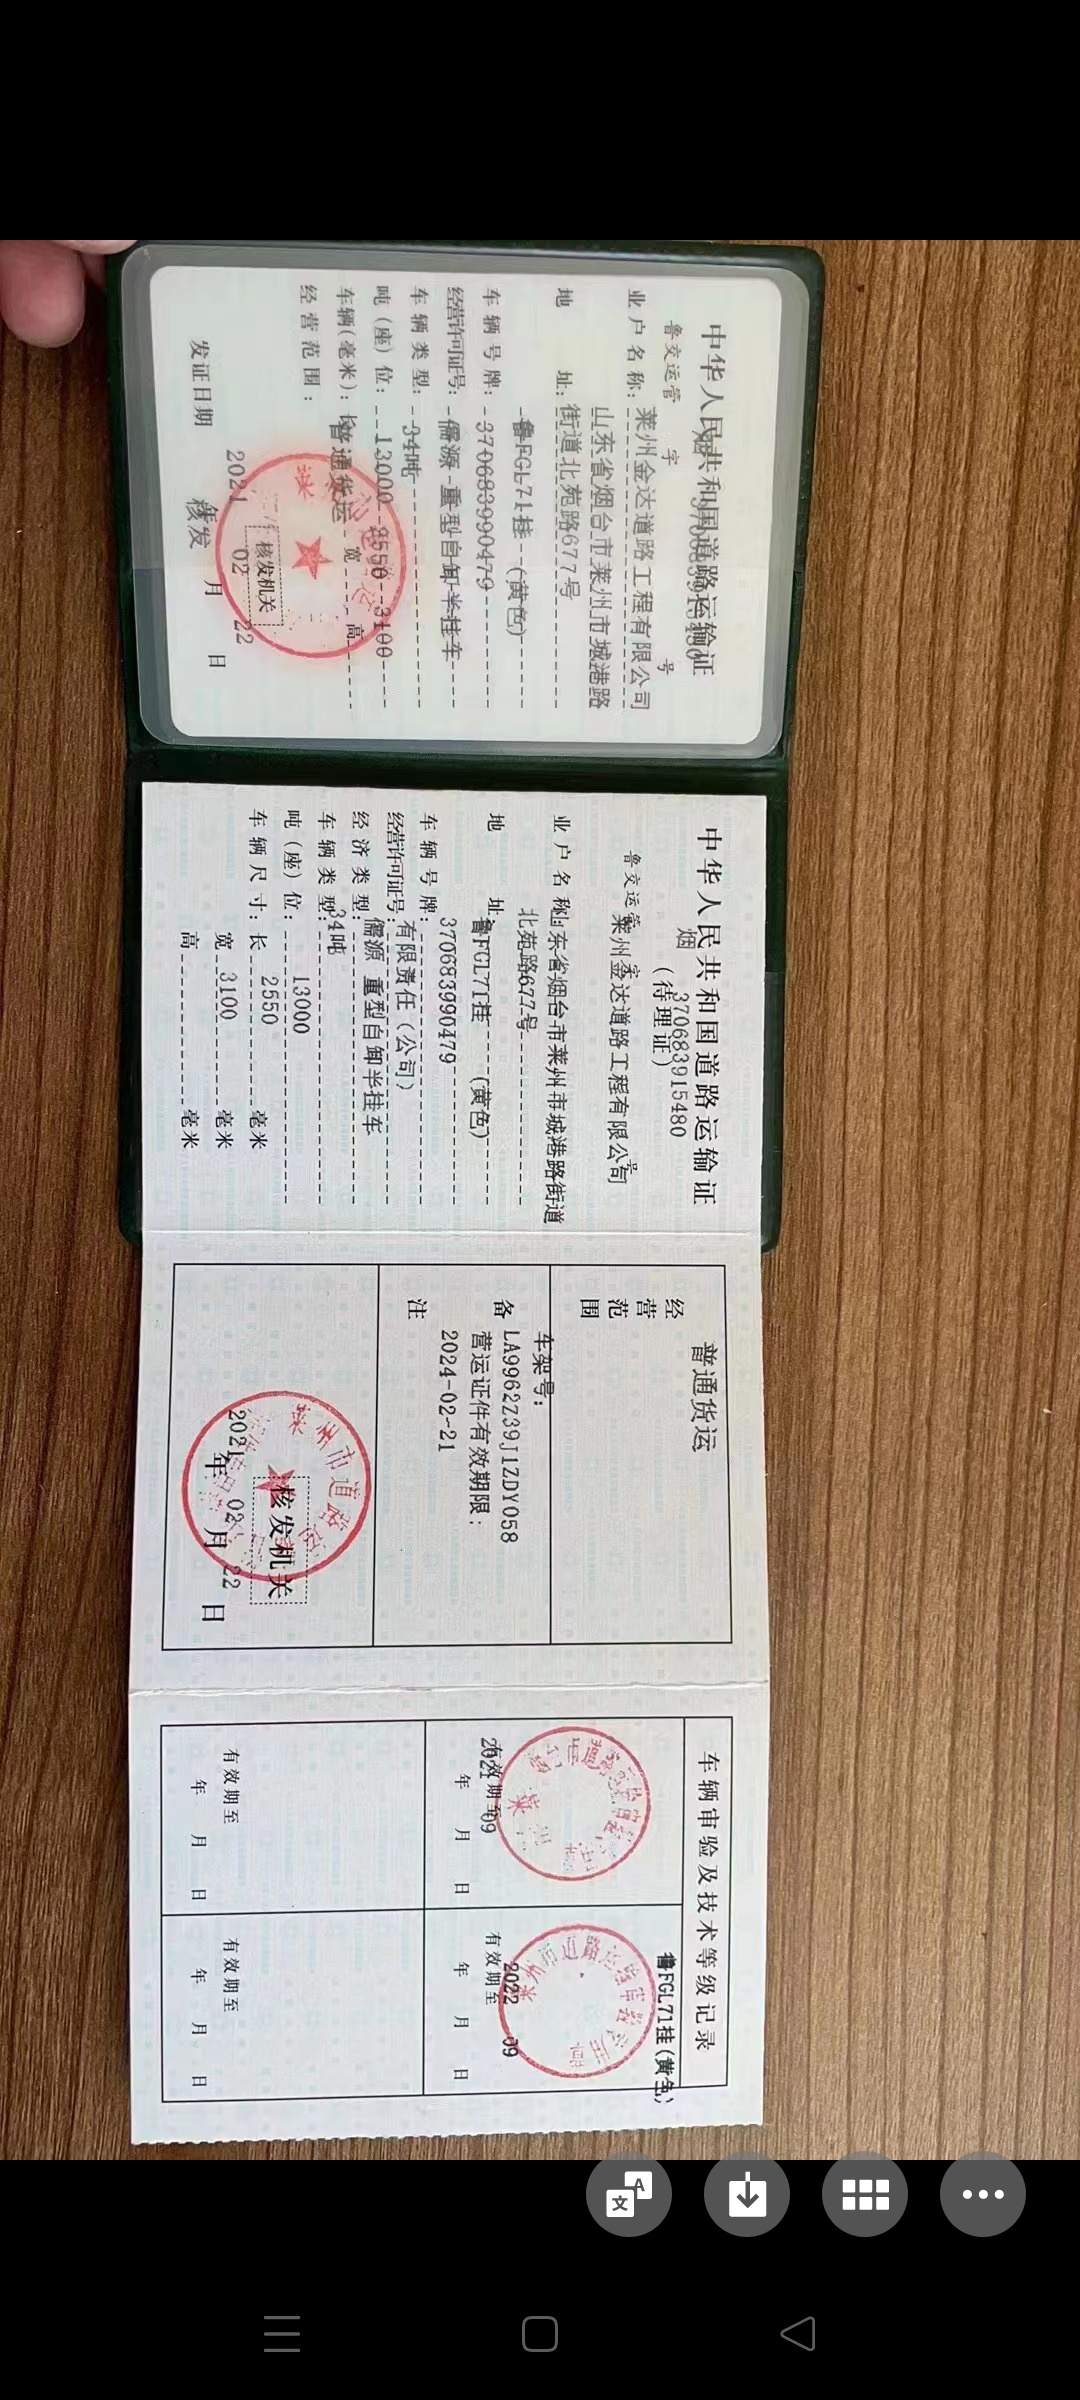 中华人民共和国道路运输证
鲁交运管 烟 字 370683915480 号
业户名称: 莱州金达道路工程有限公司
山东省烟台市莱州市城港路
地 址: 街道北苑路677号
鲁FGL71挂 (黄色)
车辆号牌: 370683990479
经营许可证号: 儒源 重型自卸半挂车
车辆类型: 34吨
吨(座)位: 13000 2550 3100
车辆(毫米): 长 宽 高
普通货运
经营范围:
核发机关
发证日期 2021 年 02 月 22 日
核发
中华人民共和国道路运输证
烟 370683915480
(待理证)
鲁交运管 字 号
莱州金达道路工程有限公司
业户名称: 山东省烟台市莱州市城港路街道
北苑路677号
地 址: 鲁FGL71挂 (黄色)
370683990479
车辆号牌:
有限责任(公司)
经营许可证号:
儒源 重型自卸半挂车
经济类型:
34吨
车辆类型:
吨(座)位: 13000
车辆尺寸: 长 2550 毫米
宽 3100 毫米
高 毫米
普通货运
经营范围
车架号:
备注 LA9962Z39J1ZDY058
营运证件有效期限:
2024-02-21
核发机关
2021 年 02 月 22 日
车辆审验及技术等级记录
鲁FGL71挂(黄色)
有效期至
2021 09
年 月 日
有效期至
2022 09
年 月 日
有效期至
年 月 日
有效期至
年 月 日